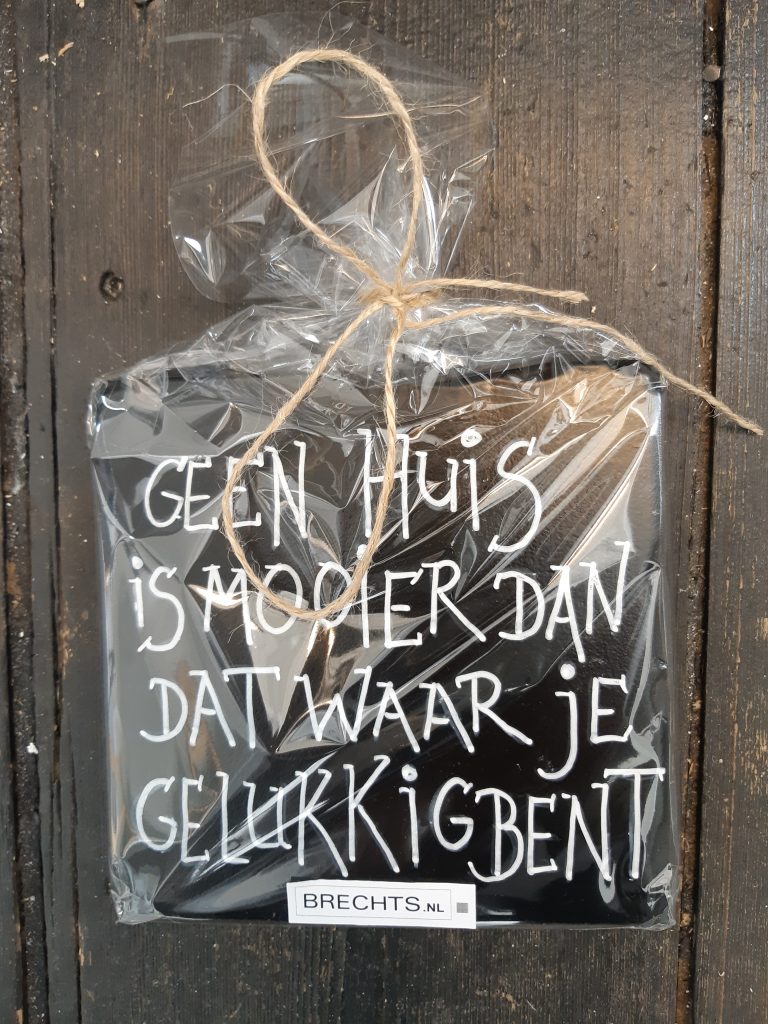 GEEN HUIS
iS MOOIER DAN
DAT WAAR jE
GELUKKiG BENT
BRECHTS.NL